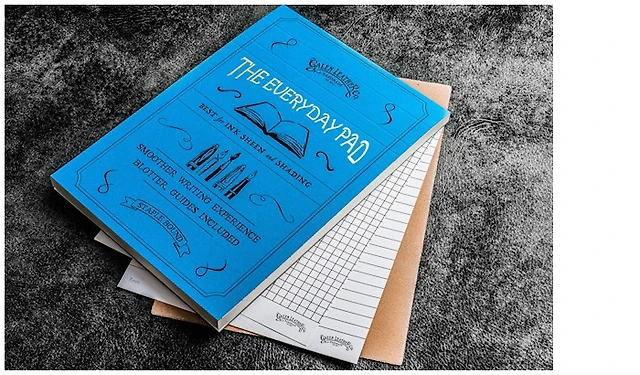 GALEN LEATHER Co
THE EVERYDAY PAD
BEST for INK SHEEN and SHADING
SMOOTHER WRITING EXPERIENCE
BLOTTER, GUIDES INCLUDED
STAPLE BOUND
GALEN LEATHER Co
GALEN LEATHER Co